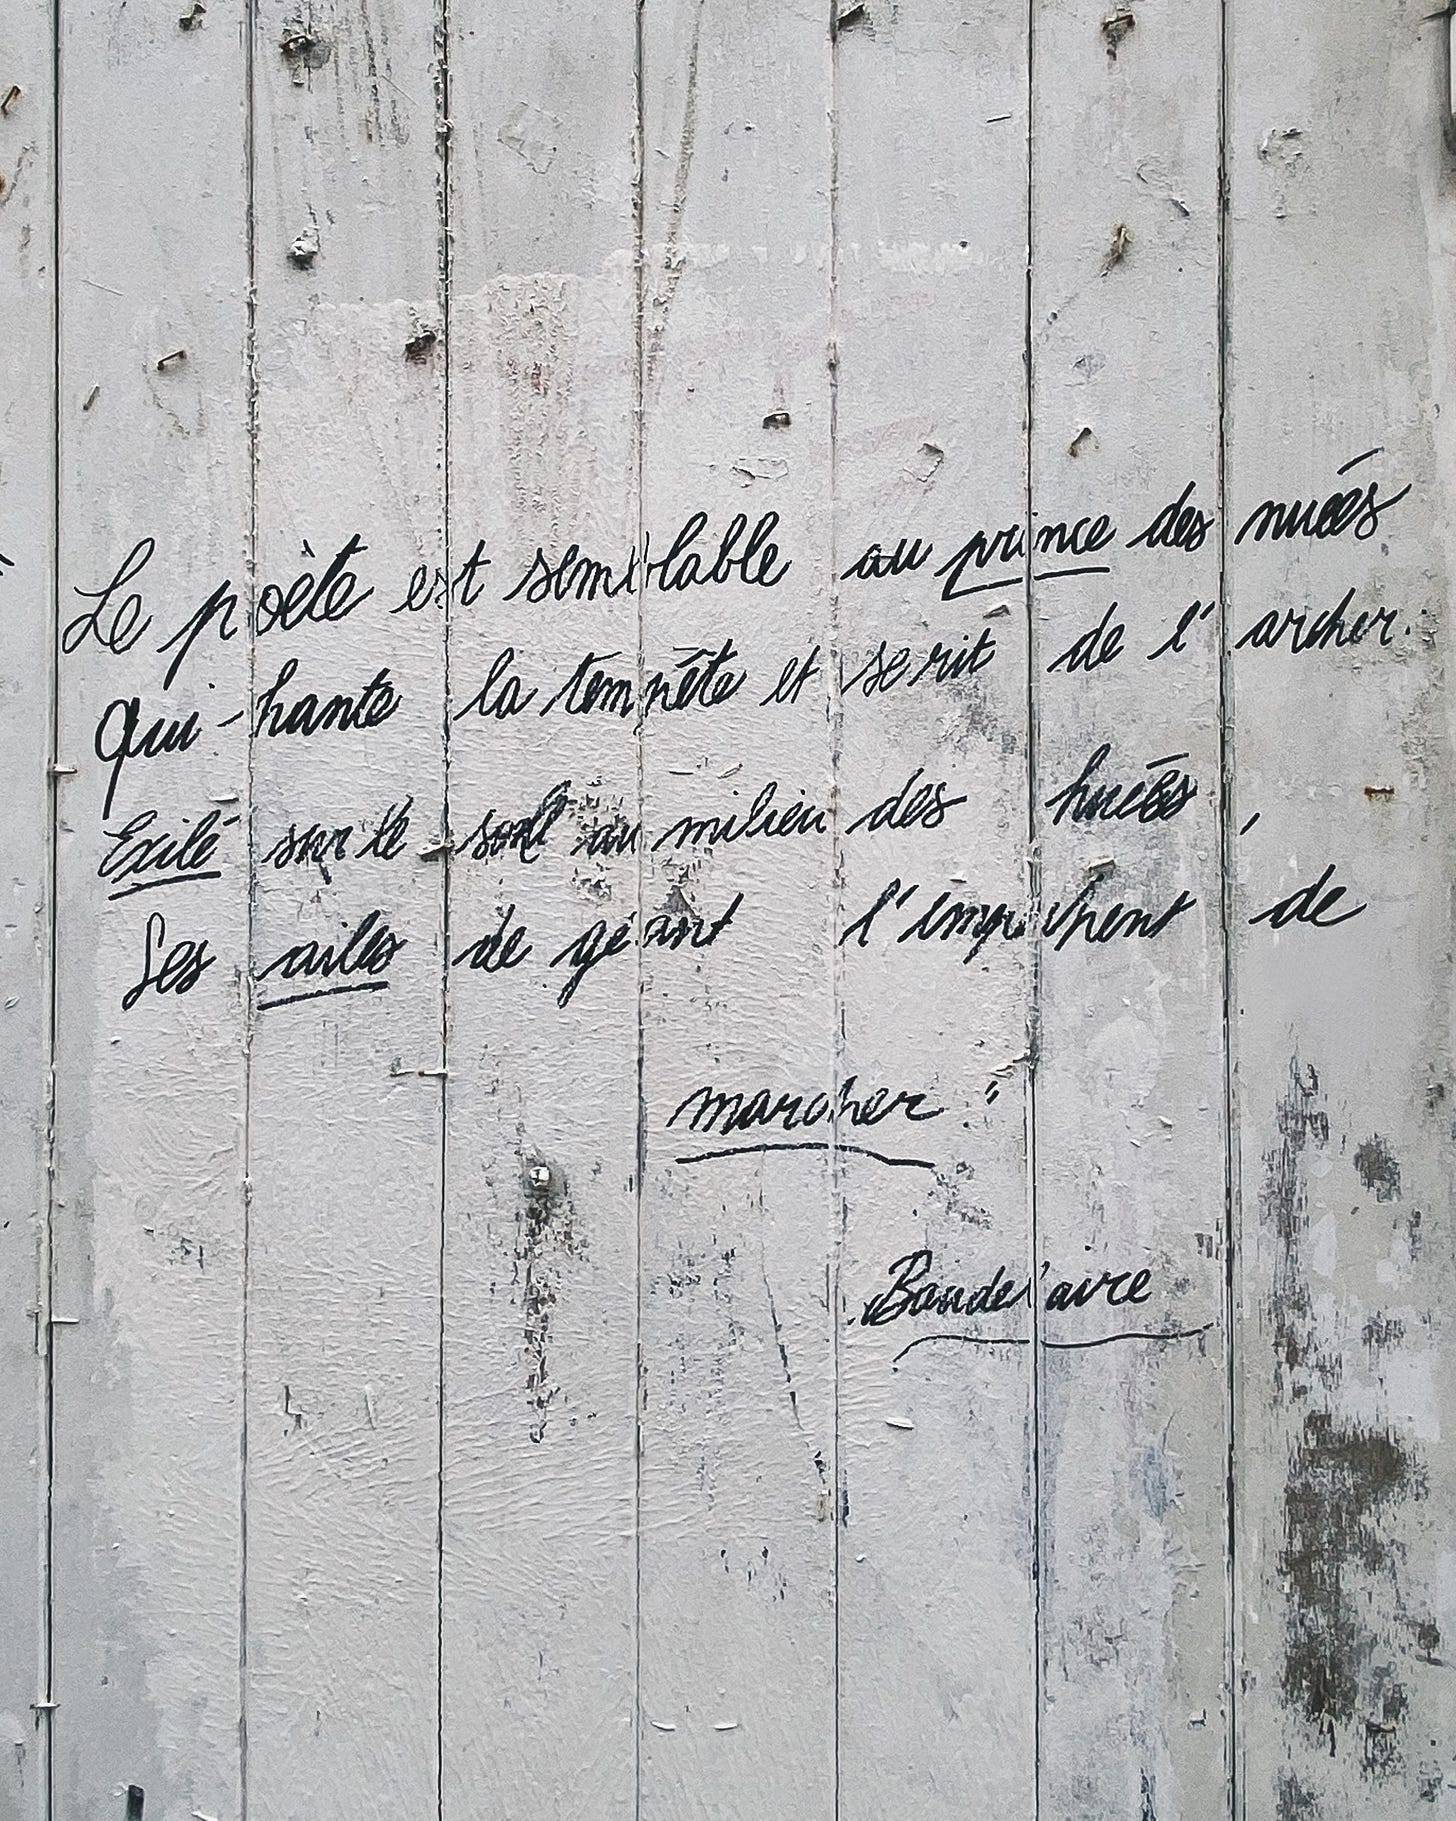 Le poète est semblable au prince des nuées
Qui hante la tempête et se rit de l'archer.
Exilé sur le sol au milieu des huées,
Ses ailes de géant l'empêchent de
marcher "
Baudelaire